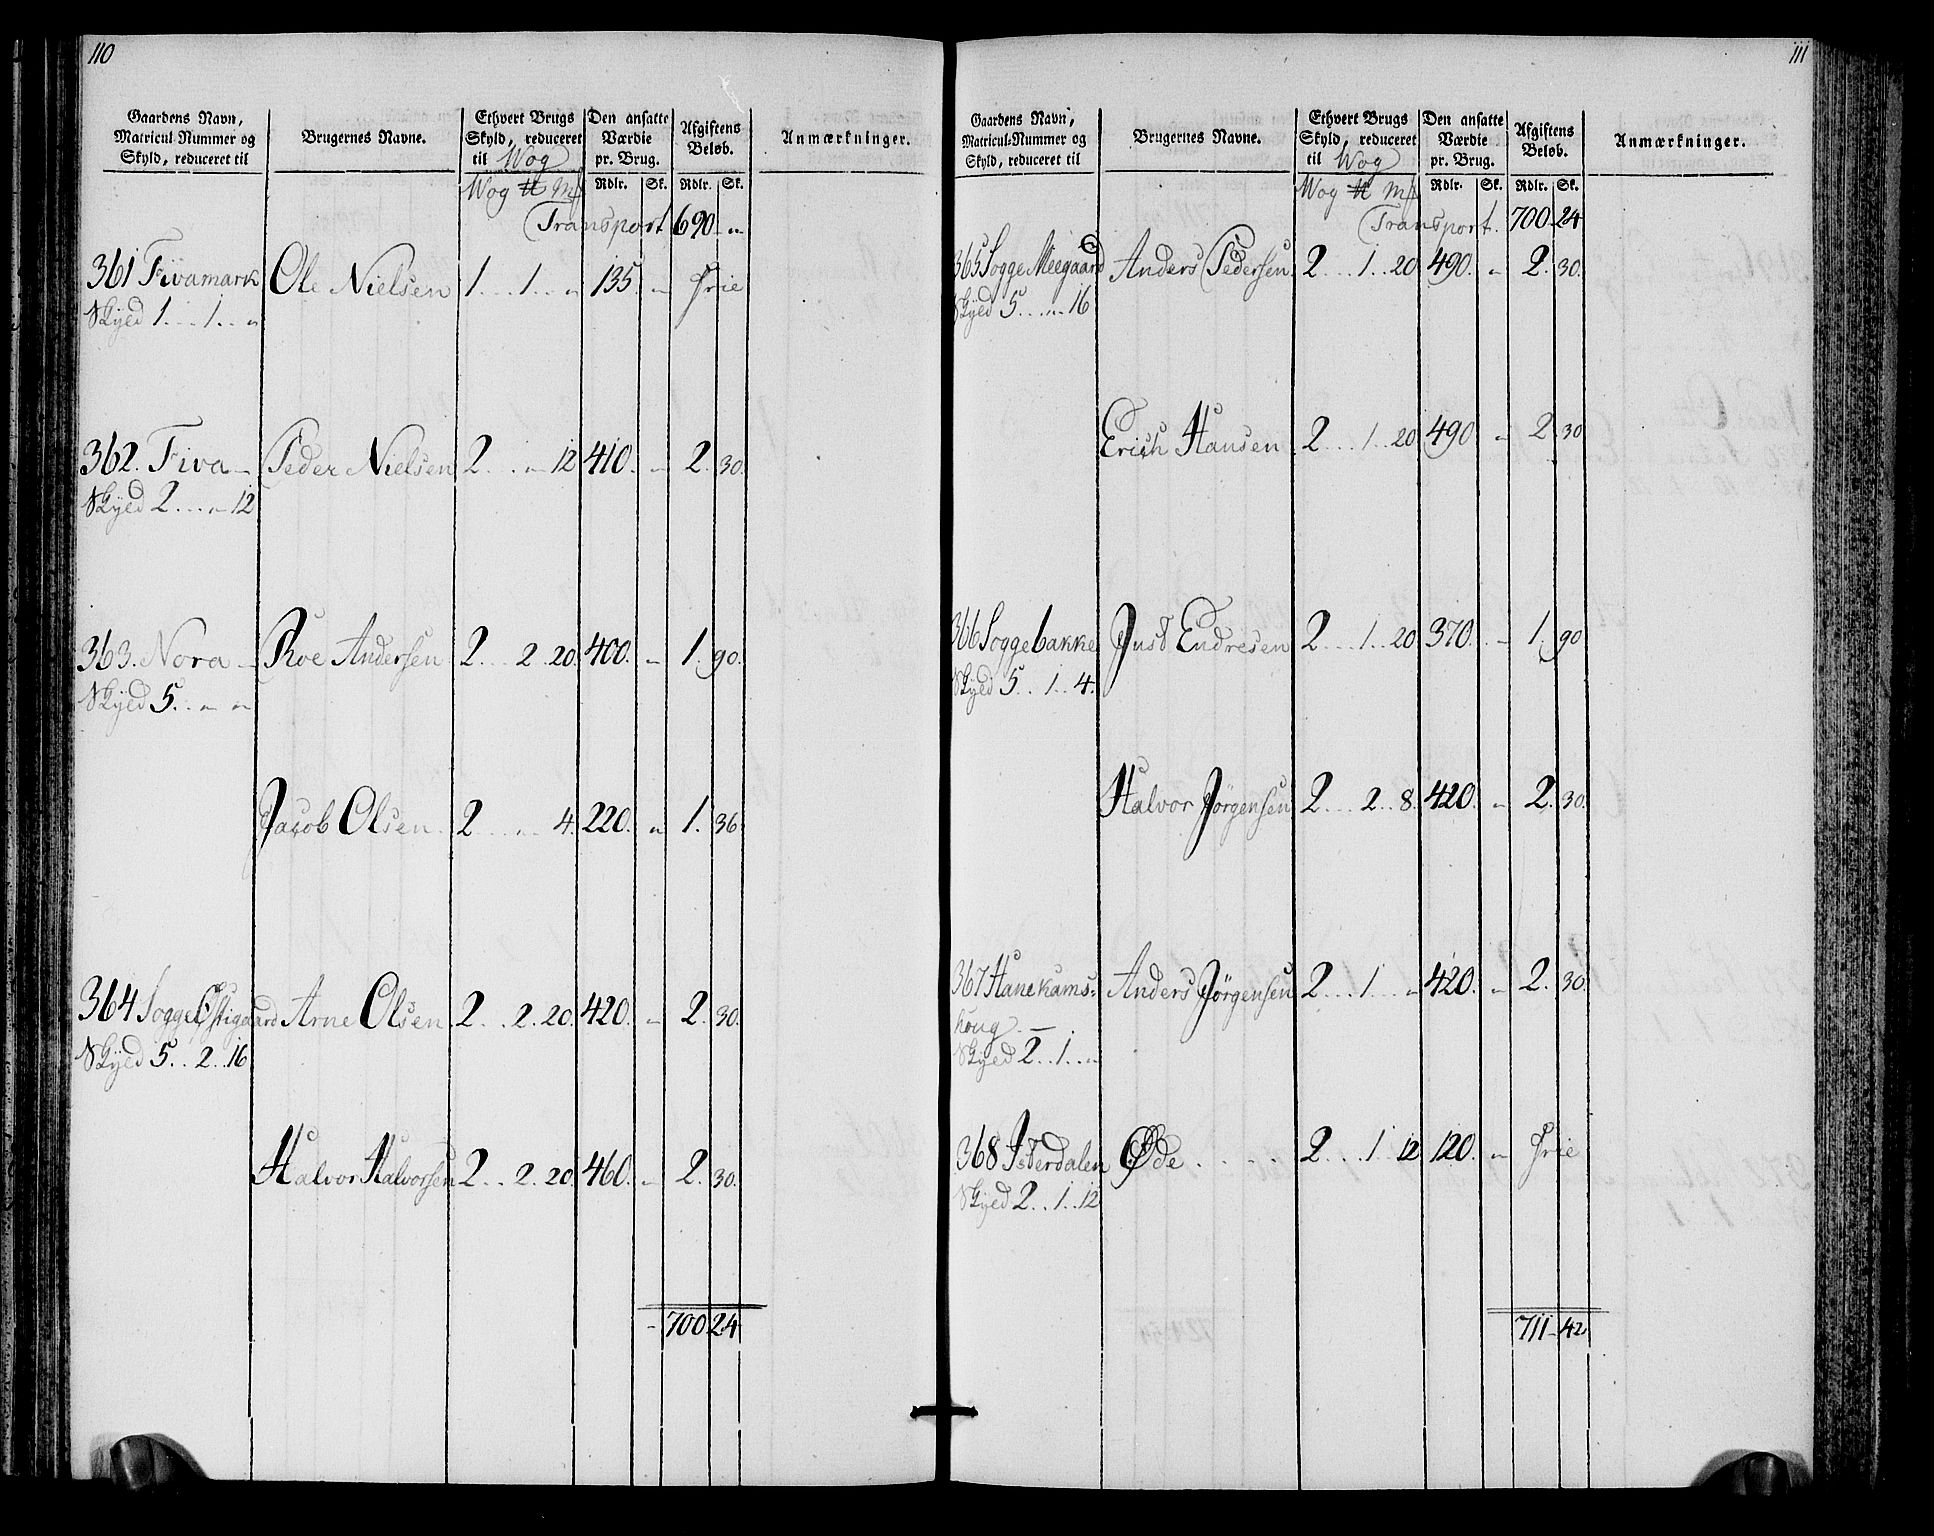 110
Gaardens Navn, Matricul-Nummer og Skyld, reduceret til | Brugernes Navne. | Ethvert Brugs Skyld, reduceret til Wog | Den ansatte Værdie pr. Brug. | Afgiftens Beløb. | Anmærkninger.
Wog ℔ Mk | Rdlr. | Sk. | Rdlr. | Sk.
Transport 690 „
361 Fivamark Ole Nielsen 1 . . . 1 . . „ 135. „ Frie
Skyld 1 . . . 1 . . „
362. Fiva Peder Nielsen 2 . . „ 12 410. „ 2. 30.
Skyld 2 . . . „ 12
363. Nora Roe Andersen 2 . . . 2 . 20. 400. „ 1. 90.
Skyld 5. . „ „
Jacob Olsen 2 . . „ 4. 220. „ 1. 36.
364 Sogge Østigaard Arne Olsen 2 . . 2. 20. 420. „ 2. 30.
Skyld 5. . 2. . 16
Halvor Halvorsen 2 . . 2. 20. 460. „ 2. 30.
700 24
111
Gaardens Navn, Matricul-Nummer og Skyld, reduceret til | Brugernes Navne. | Ethvert Brugs Skyld, reduceret til Wog | Den ansatte Værdie pr. Brug. | Afgiftens Beløb. | Anmærkninger.
Wog ℔ Mk | Rdlr. | Sk. | Rdlr. | Sk.
Transport. 700 24
365 Sogge Meegaard Anders Pedersen 2 . . . 1 . . 20 490. „ 2. 30.
Skyld 5 . . „ 16
Erich Hansen 2 . . . 1 . . 20 490 „ 2 30
366 Soggebakke Just Endresen 2 . . . 1 . . 20 370. „ 1. 90
Skyld 5 . . 1 . . 4.
Halvor Jørgensen 2 . . . 2 . . 8. 420. „ 2. 30.
367 Hanekams- Anders Jörgensen 2 . . . 1 . . . „ 420. „ 2. 30.
houg
Skyld 2 . . 1 . . „
368 Isterdalen Øde . . . . 2 . . . 1 . . 12 120. „ Frie
Skyld 2 . . 1 . . 12
711 42